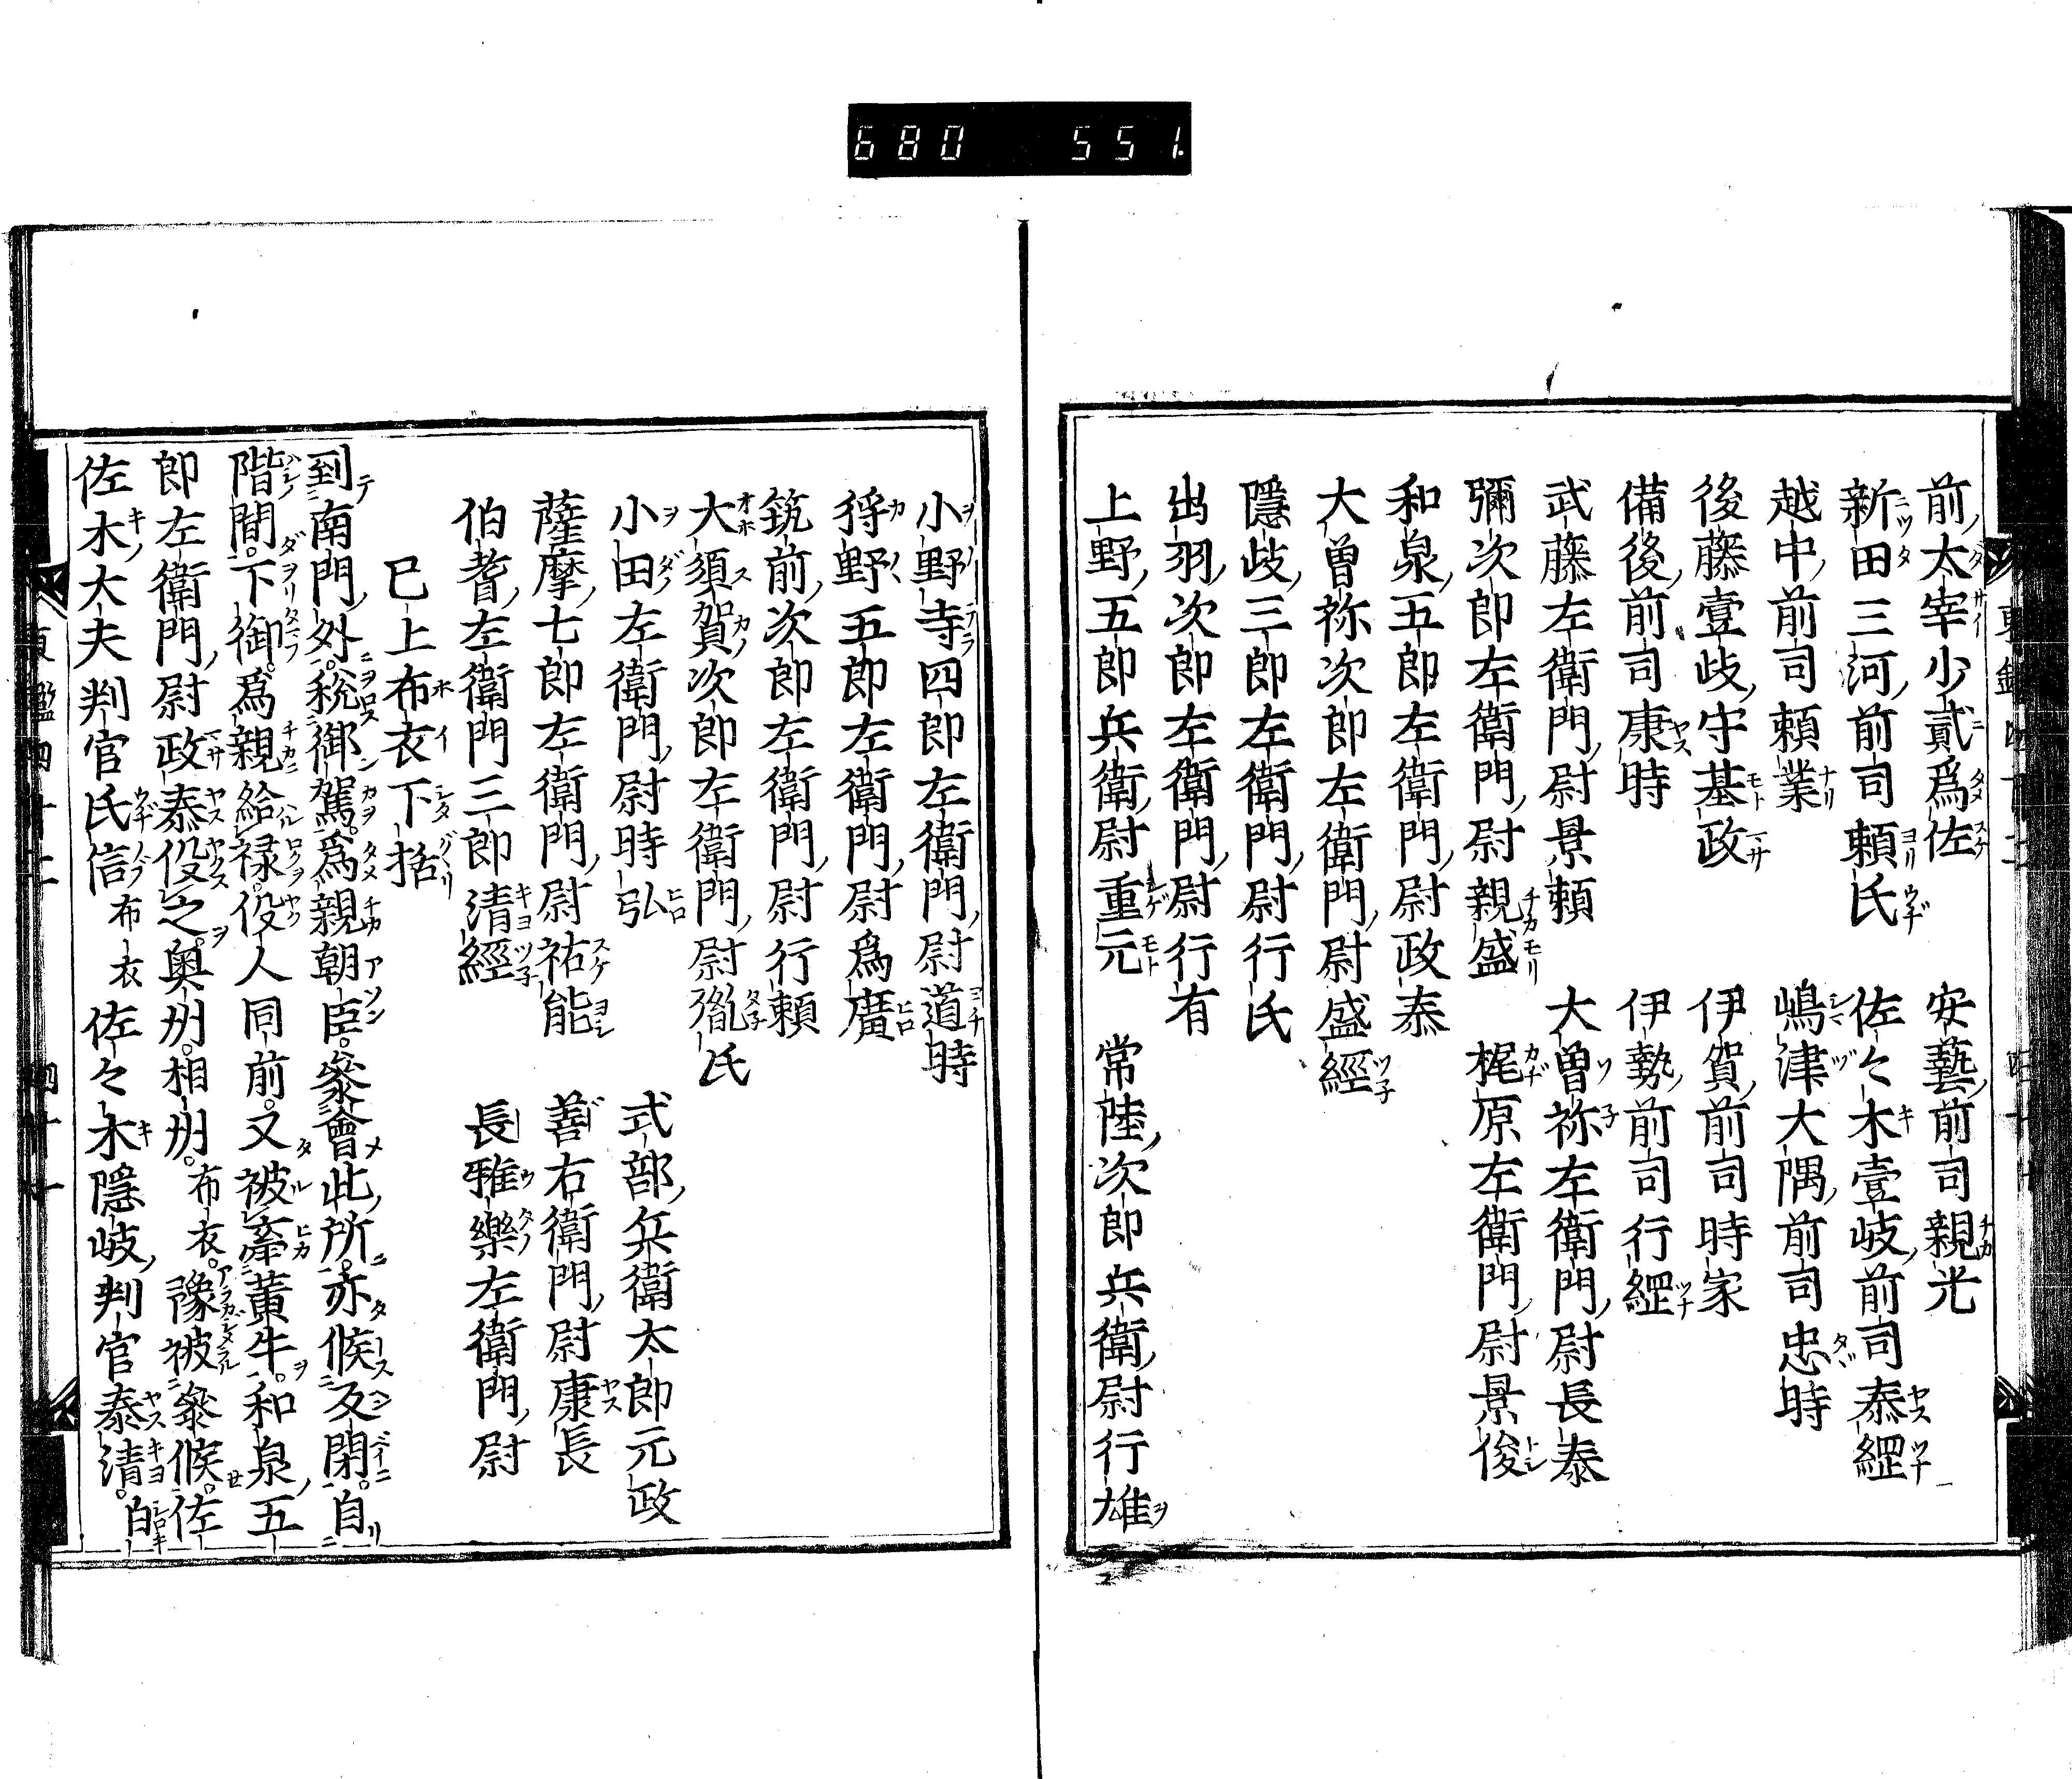 680 551
前太宰少貳爲佐 安藝前司親光
新田三河前司頼氏 佐々木壹岐前司泰經
越中前司頼業 嶋津大隅前司忠時
後藤壹岐守基政 伊賀前司時家
備後前司康時 伊勢前司行經
武藤左衛門尉景頼 大曽祢左衛門尉長泰
彌次郎左衛門尉親盛 梶原左衛門尉景俊
和泉五郎左衛門尉政泰
大曽祢次郎左衛門尉盛經
隱岐三郎左衛門尉行氏
出羽次郎左衛門尉行有
上野五郎兵衛尉重元 常陸次郎兵衛尉行雄
小野寺四郎左衛門尉道時
狩野五郎左衛門尉爲廣
筑前次郎左衛門尉行頼
大須賀次郎左衛門尉胤氏
小田左衛門尉時弘 式部兵衛太郎元政
薩摩七郎左衛門尉祐能 善右衛門尉康長
伯耆左衛門三郎清經 長雅樂左衛門尉
已上布衣下括
到南門外。税御駕。爲親朝臣。參會此所。亦候反閇。自
階間。下御。爲親給禄。役人同前。又被牽黄牛。和泉五
郎左衛門尉政泰役之。奥州。相州。布衣。豫被參候。佐
佐木大夫判官氏信布衣佐々木隱岐判官泰清。白